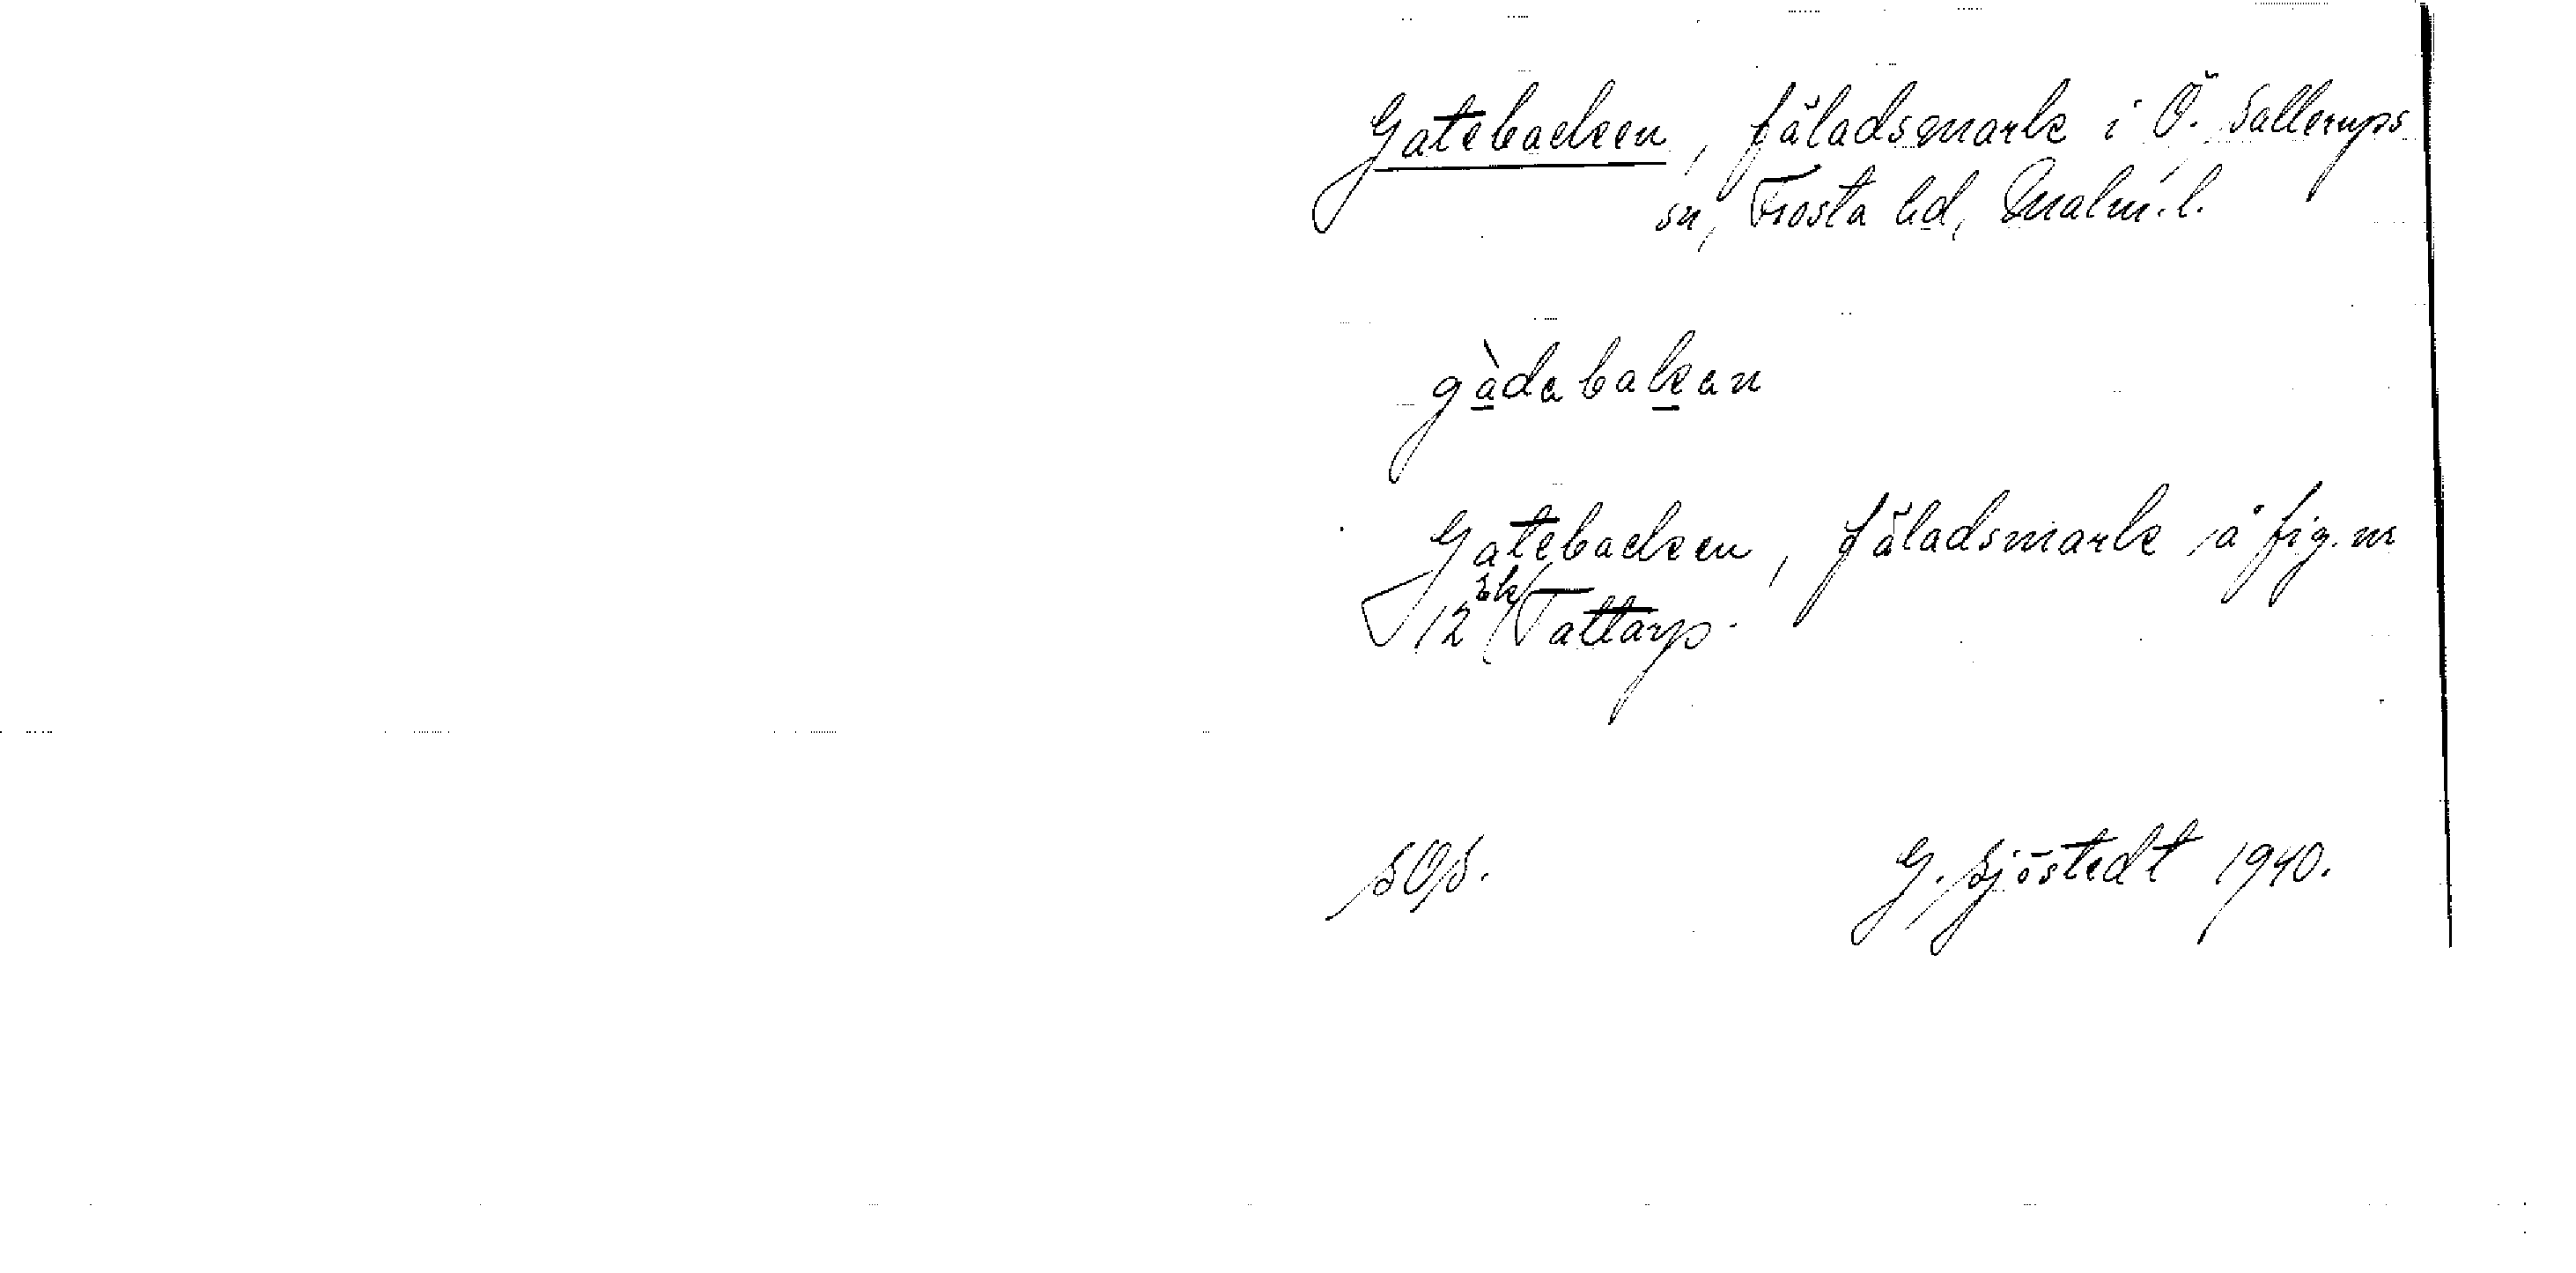 Gatebacken, fäladsmark i Ö. Sallerups
sn, Frosta hd, Malm. l.
gàdabakan
Gatebacken, fäladsmark å fig. nr
12 sk/Tattarp.
SOS.
G. Sjöstedt 1940.